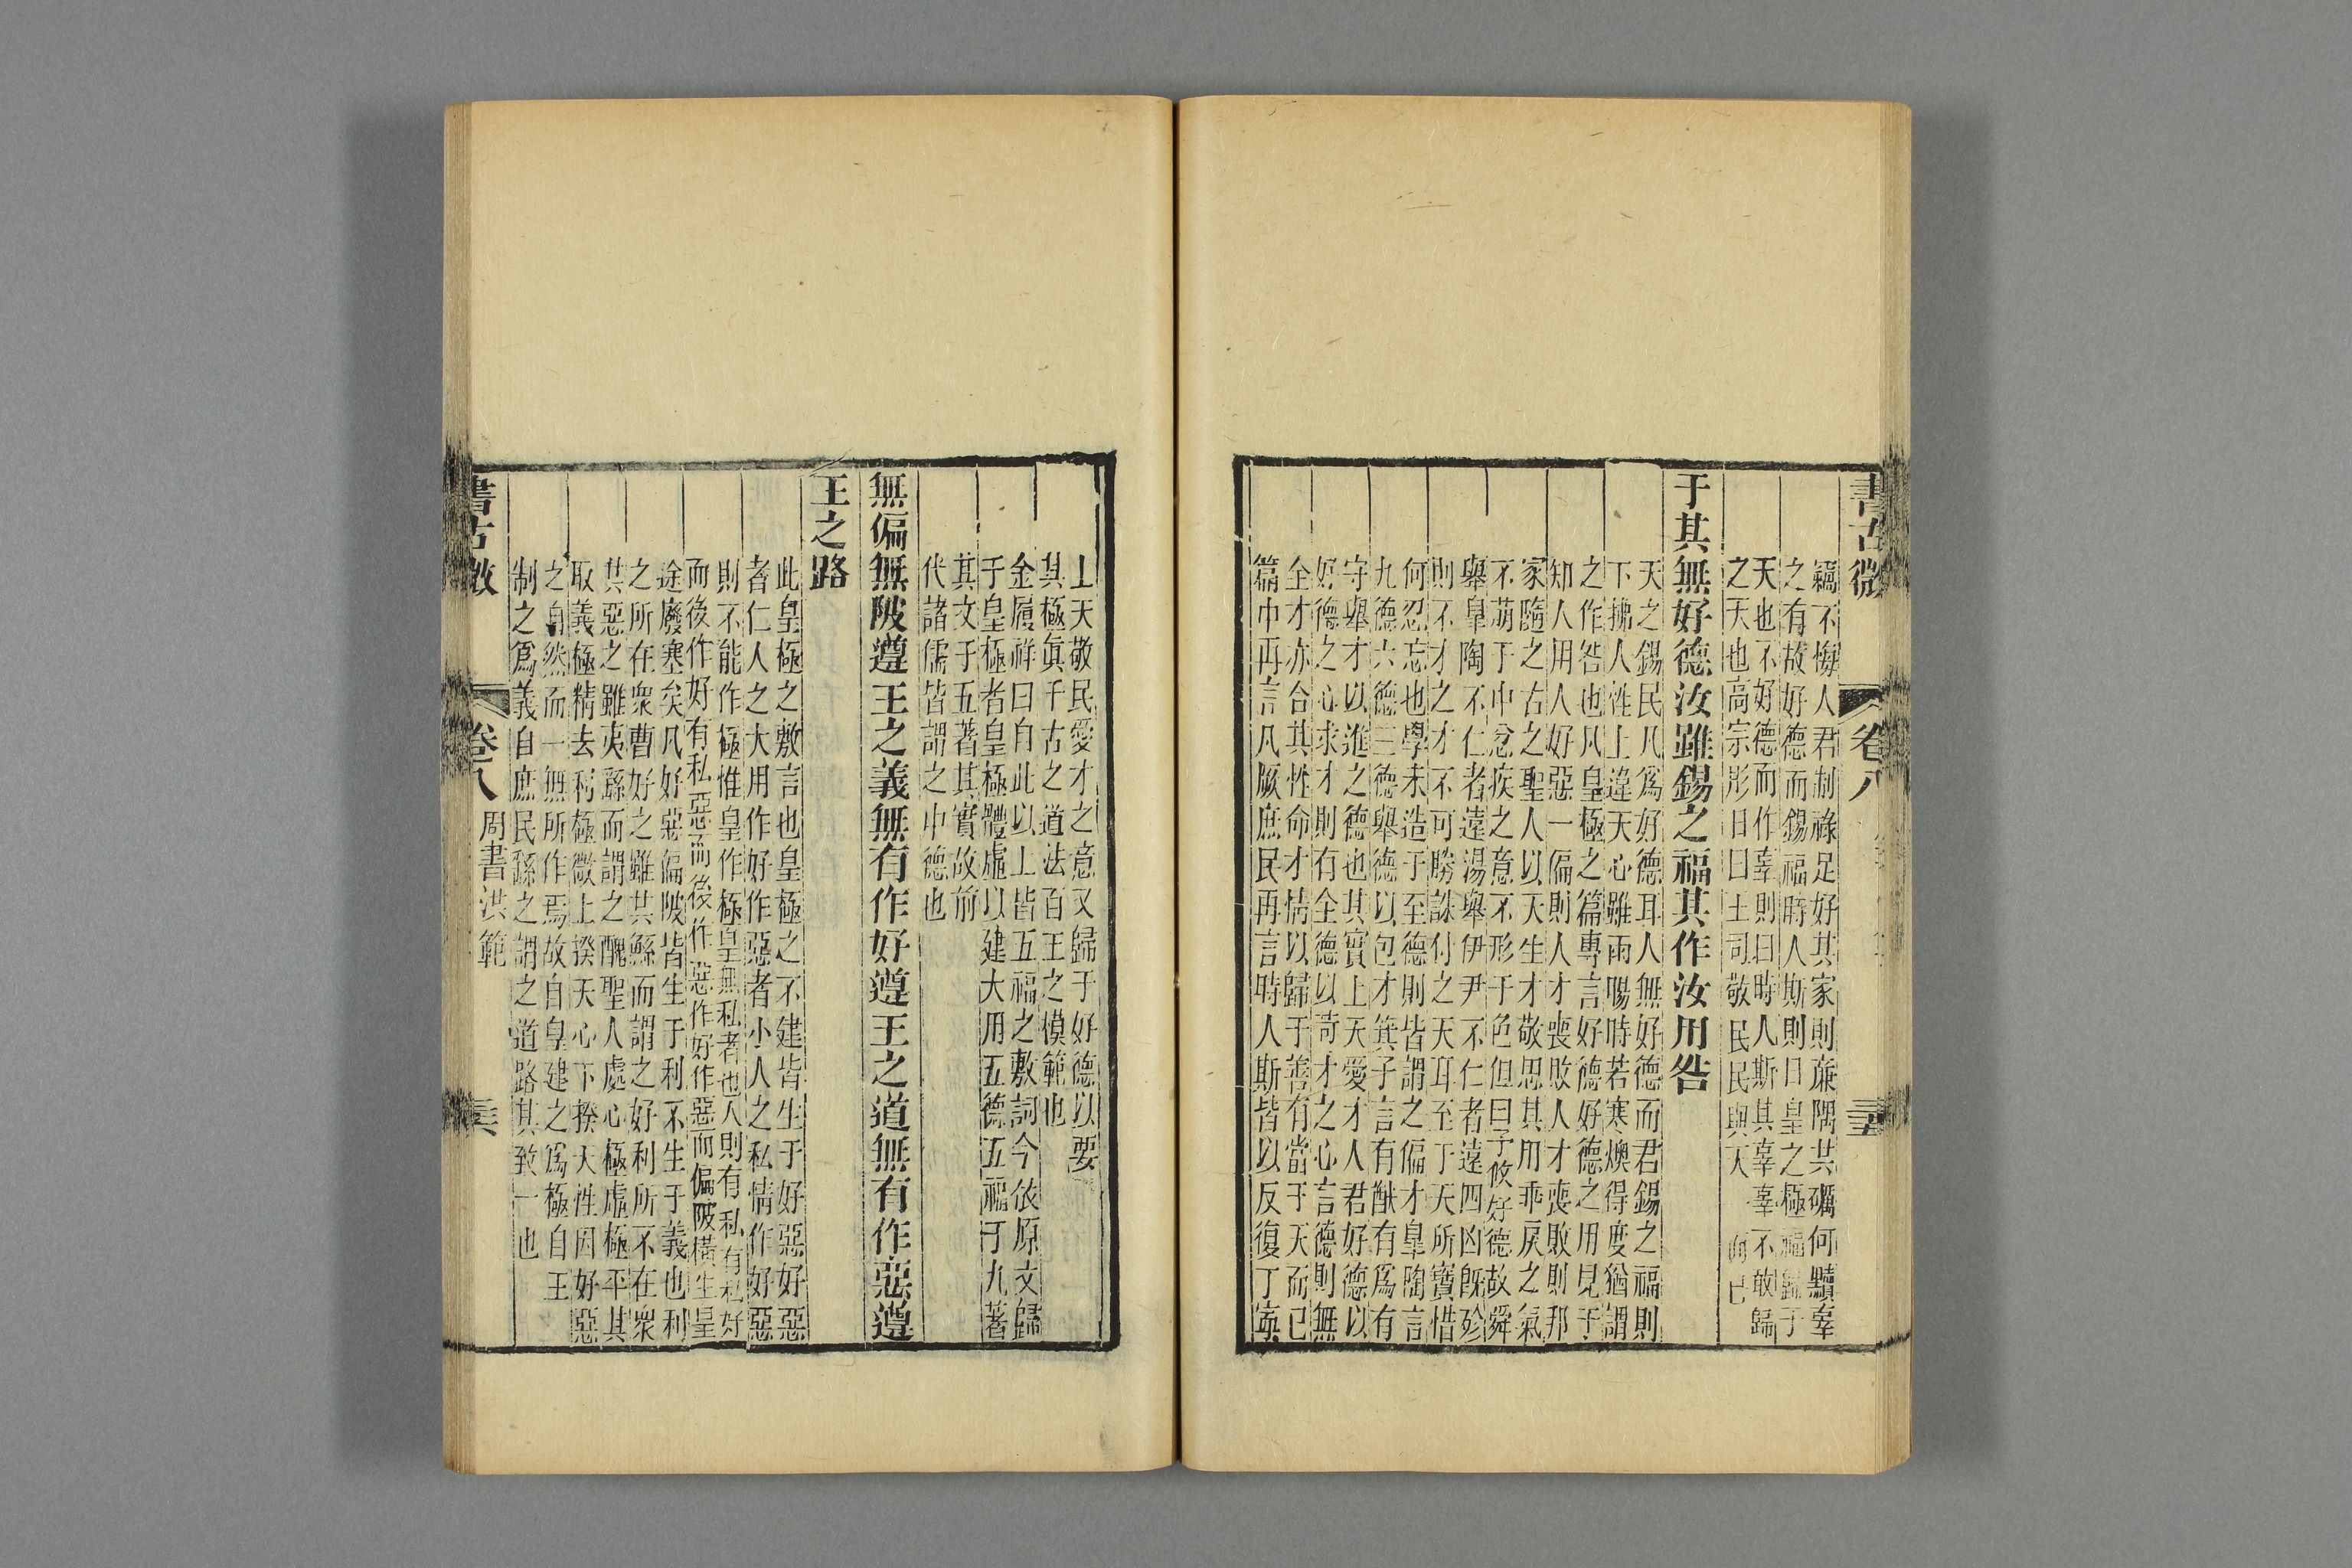 書古微
卷八
竊不悔人君制祿足好其家則廉隅共礪何黷辜
之有故好德而錫福時人斯則曰皇之極福歸于
天也不好德而作辜則曰時人斯其辜辜不敢歸
之天也高宗肜日曰王司敬民民與天一而已
于其無好德汝雖錫之福其作汝用咎
天之錫民凡爲好德耳人無好德而君錫之福則
下拂人性上違天心雖雨暘時若寒燠得度猶謂
之作咎也凡皇極之篇專言好德好德之用見于
知人用人好惡一偏則人才喪敗人才喪敗則邦
家隨之古之聖人以天生才敬思其用乖戾之氣
不萌于中忿疾之意不形于色但曰予攸好德故舜
舉皐陶不仁者遠湯舉伊尹不仁者遠四凶既殄
則不才之才不可勝誅付之天耳至于天所寶惜
何忍忘也學未造于至德則皆謂之偏才皐陶言
九德六德三德舉德以包才箕子言有猷有爲有
守舉才以進之德也其實上天愛才人君好德以
好德之心求才則有全德以苛才之心言德則無
全才亦合其性命才情以歸于善有當于天而已
篇中再言凡厥庶民再言時人斯皆以反復丁寧
上天敬民愛才之意又歸于好德以要
其極眞千古之道法百王之模範也
金履祥曰自此以上皆五福之敷詞今依原文歸
于皇極者皇極體虛以建大用五德五福于九著
其文于五著其實故前
代諸儒皆謂之中德也
無偏無陂遵王之義無有作好遵王之道無有作惡遵
王之路
此皇極之敷言也皇極之不建皆生于好惡好惡
者仁人之大用作好作惡者小人之私情作好惡
則不能作極惟皇作極皇無私者也人則有私有私好
而後作好有私惡而後作惡作好作惡而偏陂橫生皇
途廢塞矣凡好惡偏陂皆生于利不生于義也利
之所在衆曹好之雖其鯀而謂之好利所不在衆
其惡之雖夷繇而謂之醜聖人處心極虛極平其
取義極精去利極微上揆天心下揆人性因好惡
之自然而一無所作焉故自皇建之爲極自王
制之爲義自庶民繇之謂之道路其致一也
書古微
卷八
周書洪範